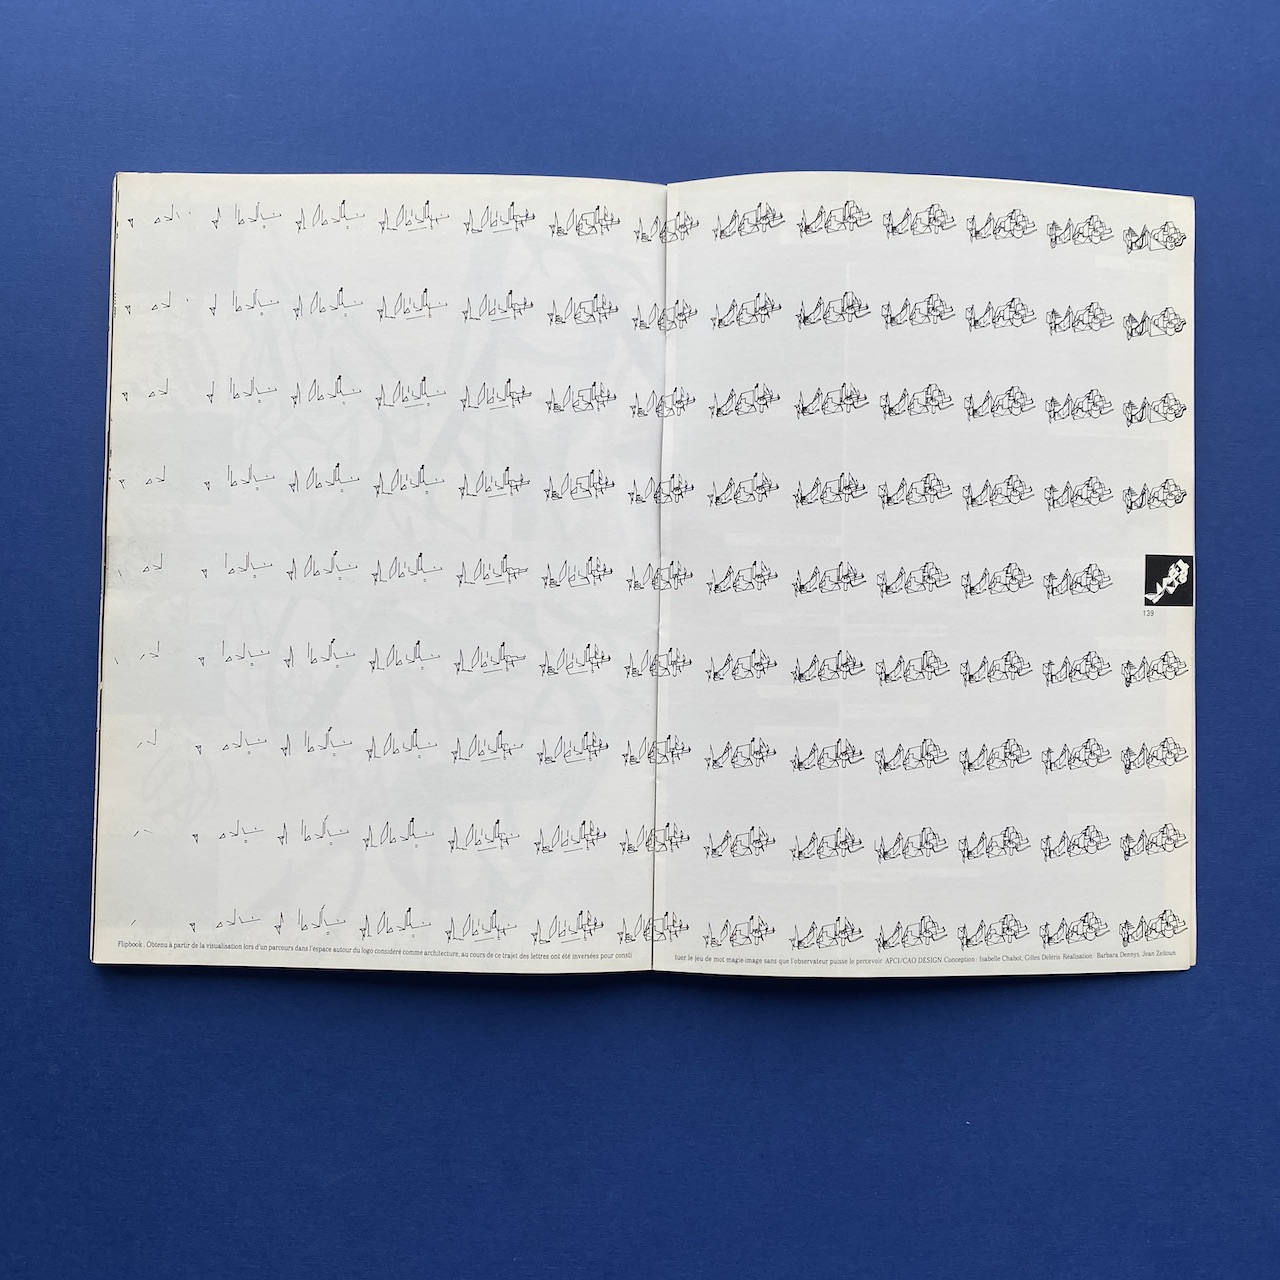 139
Flipbook : Obtenu à partir de la visualisation lors d'un parcours dans l'espace autour du logo considéré comme architecture, au cours de ce trajet des lettres ont été inversées pour consti
tuer le jeu de mot magie-image sans que l'observateur puisse le percevoir. APCI/CAO DESIGN Conception : Isabelle Chabot, Gilles Deléris Réalisation : Barbara Dennys, Jean Zeitoun